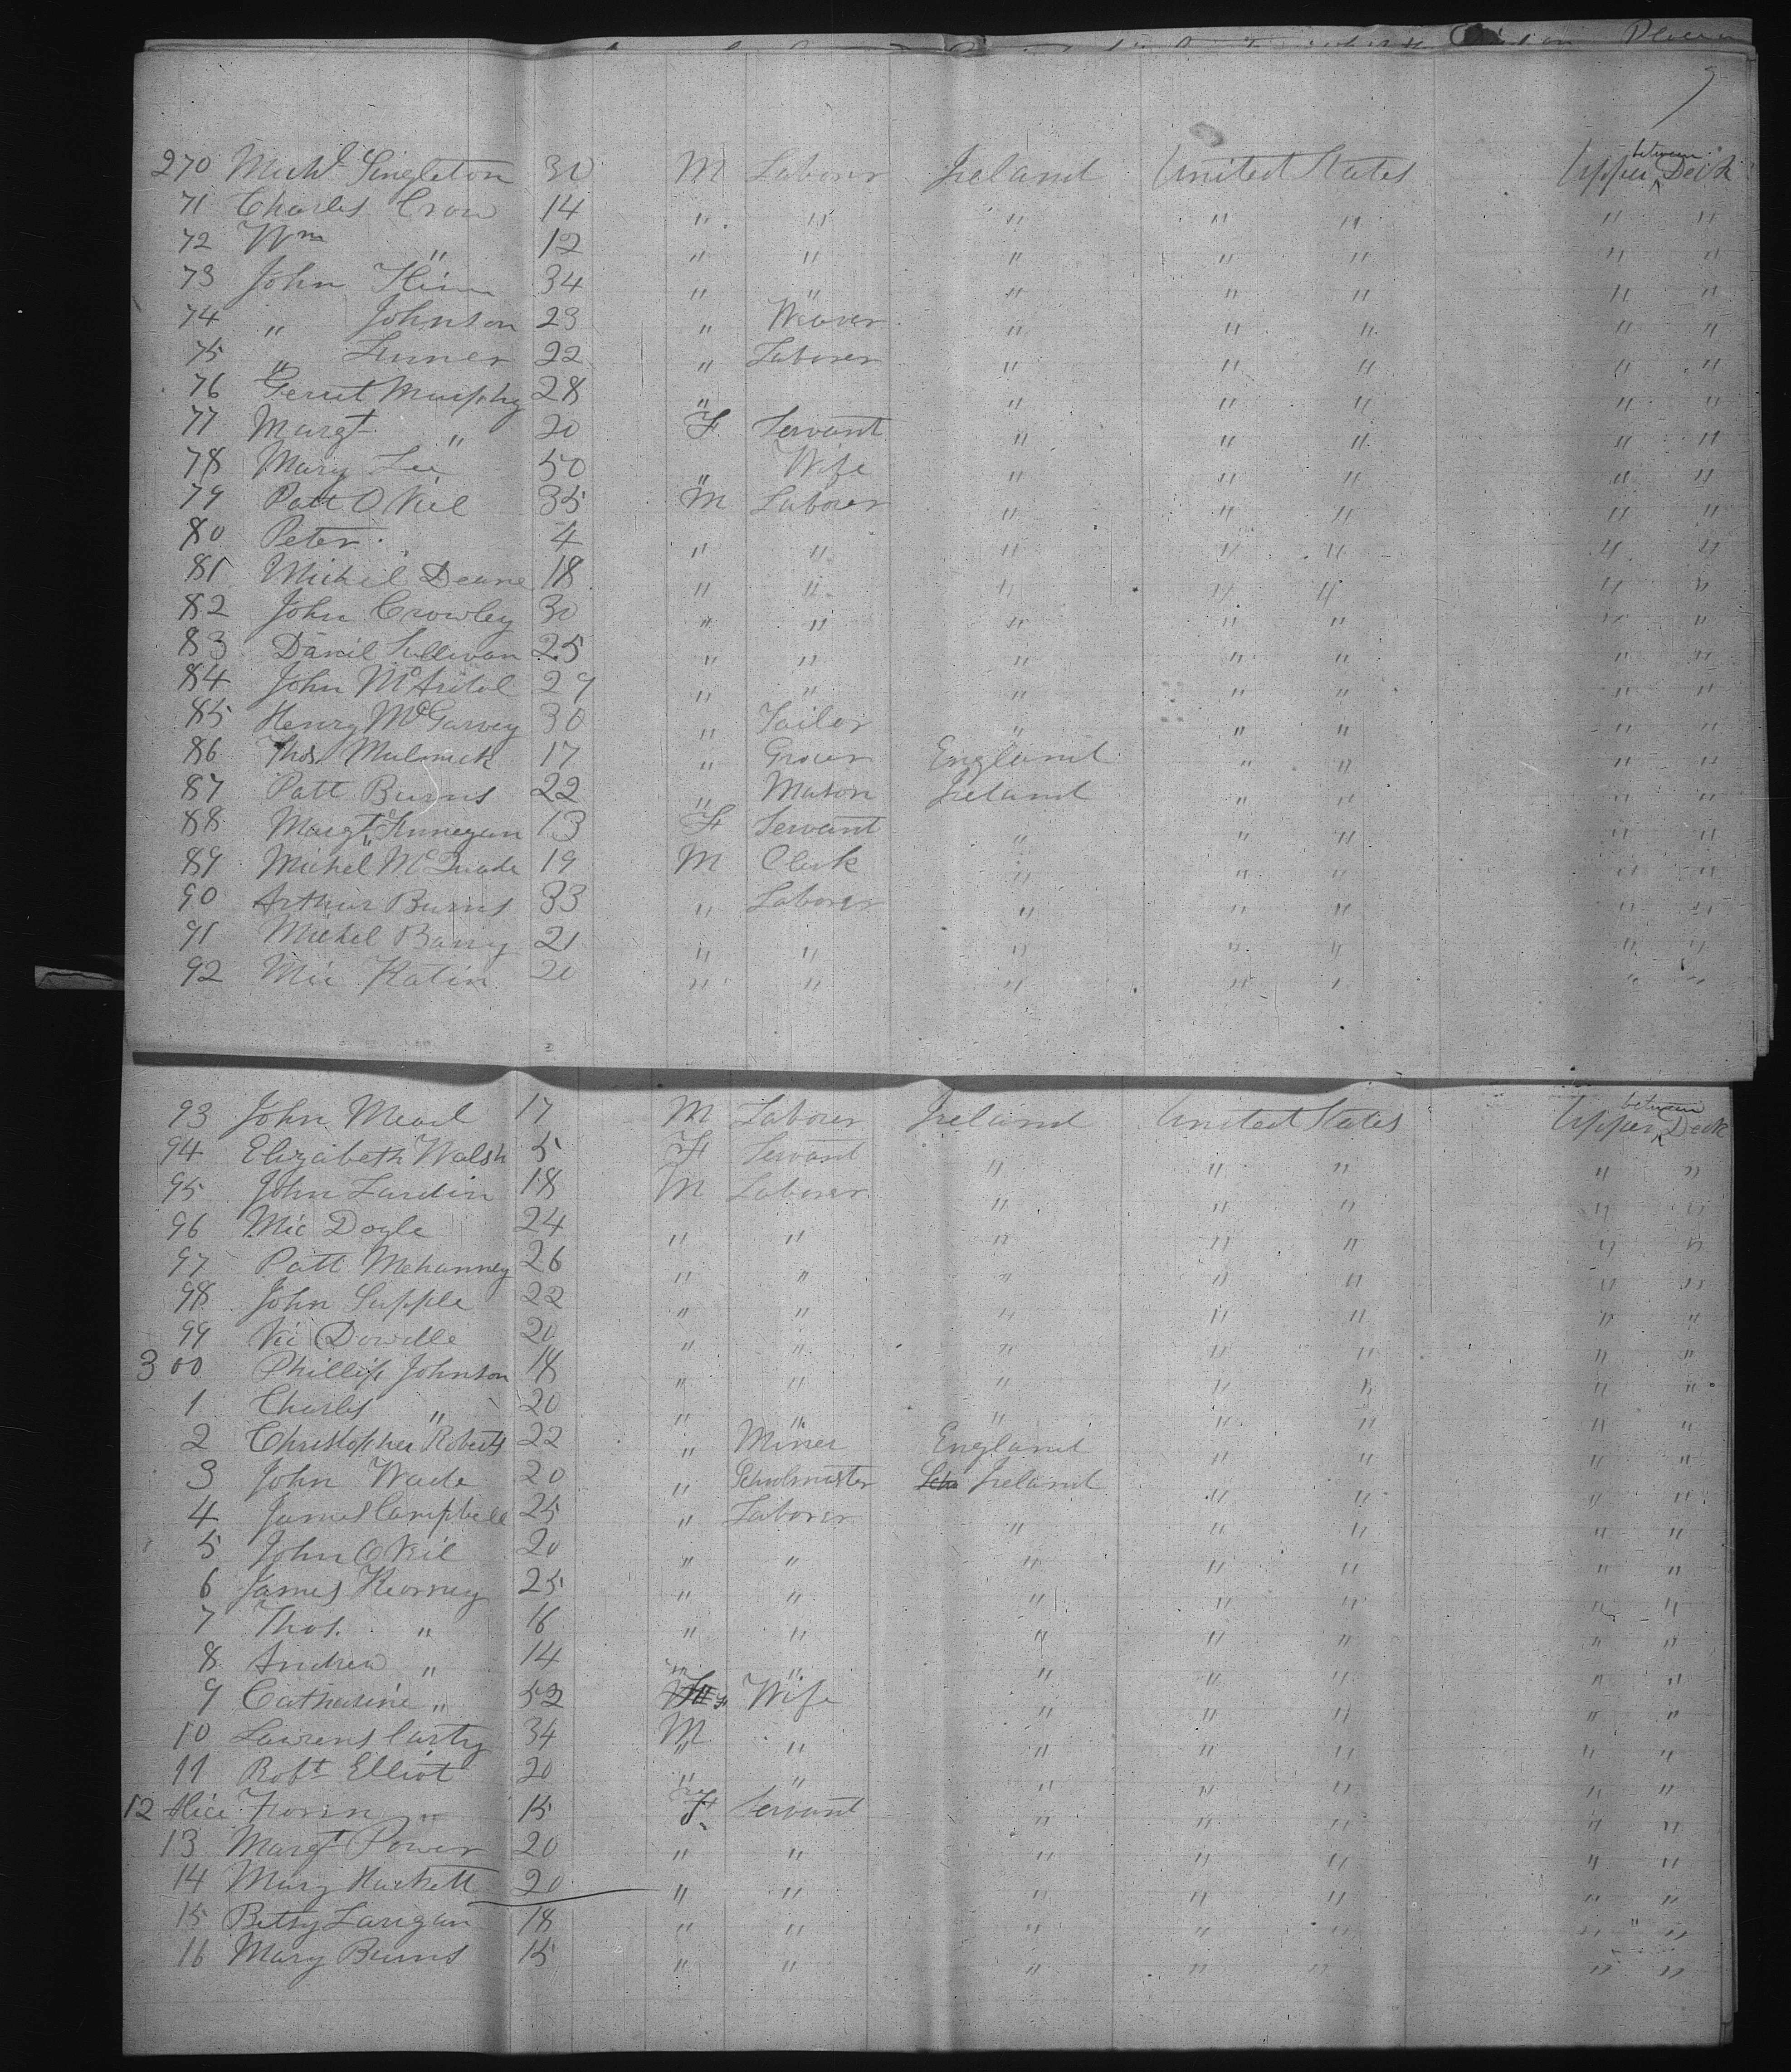 9
270 Michl Singleton 30 M Laborer Ireland United States Upper between Deck
71 Charles Crow 14 " " " " " " "
72 Wm " 12 " " " " " " "
73 John 34 " " " " " " "
74 " Johnson 23 " Weaver " " " " "
75 " 22 " Laborer " " " " "
76 Gerret Murphy 28 " " " " " "
77 Margt " 20 F Servant " " " " "
78 Mary Lee 50 " Wife " " " " "
79 Patt O Neil 35 M Laborer " " " " "
80 Peter 4 " " " " " " "
81 Michel Deane 18 " " " " " " "
82 John Crowley 30 " " " " " " "
83 Daniel Sullivan 25 " " " " " " "
84 John 29 " " " " " " "
85 Henry McGarvey 30 " Tailor " " " " "
86 Thos. 17 " Grocer England " " " "
87 Patt Burns 22 " Mason Ireland " " " "
88 Margt Finnegan 13 F Servant " " " " "
89 Michel McQuade 19 M Clerk " " " " "
90 Arthur Burns 33 " Laborer " " " " "
91 Michel Barry 21 " " " " " " "
92 Mic Katin 20 " " " " " " "
93 John Mead 17 M Laborer Ireland United States Upper between Deck
94 Elizabeth Walsh 5 F Servant " " " " "
95 John Lardin 18 M Laborer " " " " "
96 Mic Doyle 24 " " " " " " "
97 Patt Mehanney 26 " " " " " " "
98 John Supple 22 " " " " " " "
99 Dowdle 20 " " " " " " "
300 Phillip Johnson 18 " " " " " " "
1 Charles " 20 " " " " " " "
2 Christopher Roberts 22 " Miner England " " " "
3 John Wade 20 " Schoolmaster Ireland " " " "
4 James Campbell 25 " Laborer " " " " "
5 John O Neil 20 " " " " " " "
6 James Kearney 25 " " " " " " "
7 Thos. " 16 " " " " " " "
8 Andrew " 14 " " " " " " "
9 Catharine " 52 F Wife " " " " "
10 Lawrens Carty 34 M " " " " " "
11 Robt Elliot 20 " " " " " " "
12 Alice 15 F Servant " " " " "
13 Margt Power 20 " " " " " " "
14 Mary Hackett 20 " " " " " " "
15 Betsy Larigan 18 " " " " " " "
16 Mary Burns 15 " " " " " " "